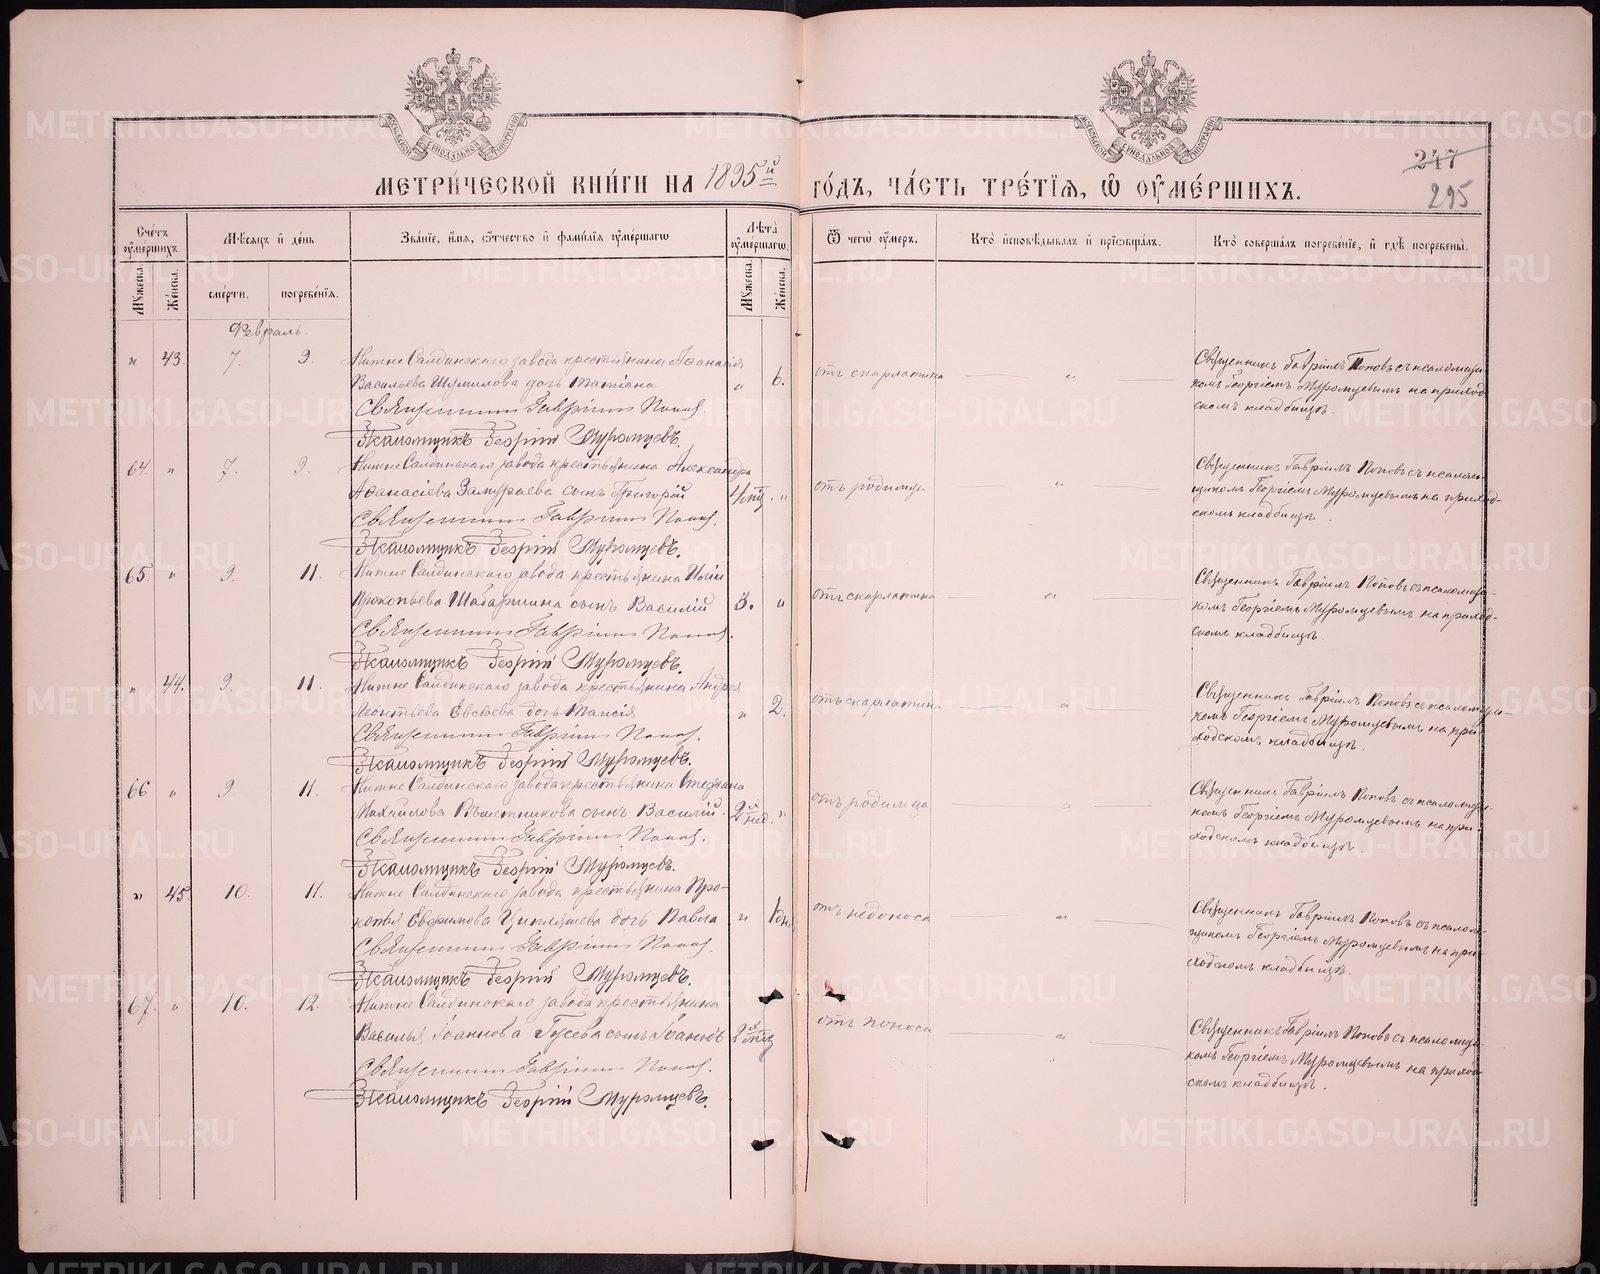 МЕТРИ́ЧЕСКОЙ КНИ́ГИ НА 1895й ГО́ДЪ, ЧА́СТЬ ТРЕ́ТІѦ, Ѡ ОУМЕ́РШИХЪ.
247
295
Сче́тъ оуме́ршихъ.
Мѣ́сѧцъ и де́нь
Зва́ніе, и́мѧ, ѻ́тчество и фами́лїѧ оуме́ршагѡ
Лѣ́та оуме́ршагѡ.
Ѿ чегѡ̀ оу́меръ.
Кто̀ и҆сповѣ́дывалъ и҆ прїѡбща́лъ.
Кто̀ соверша́лъ погребе́нїе, и҆ гдѣ̀ погребены̀.
Мꙋ́жеска.
Же́нска.
сме́рти.
погребе́нїѧ.
Мꙋ́жеска.
Же́нска.
Февраль.
" 43. 7. 9. Нижне Салдинскаго завода крестьянина Аѳанасія
Васильева Шумилова дочь Татіана " 6. отъ скарлатина "
Священникъ Гавріилъ Поповъ.
Псаломщикъ Георгій Муромцевъ.
Священникъ Гавріилъ Поповъ съ псаломщи-
комъ Георгіемъ Муромцевымъ на приход-
скомъ кладбищѣ.
64. " 7. 9. Нижне Салдинскаго завода крестьянина Александра
Аѳанасіева Замураева сынъ Григорій 4 мѣц. " отъ родимца "
Священникъ Гавріилъ Поповъ.
Псаломщикъ Георгій Муромцевъ.
Священникъ Гавріилъ Поповъ съ псалом-
щикомъ Георгіемъ Муромцевымъ на приход-
скомъ кладбищѣ.
65. " 9. 11. Нижне Салдинскаго завода крестьянина Иліи
Прокопьева Шабаршина сынъ Василій 3. " отъ скарлатина "
Священникъ Гавріилъ Поповъ.
Псаломщикъ Георгій Муромцевъ.
Священникъ Гавріилъ Поповъ съ псаломщи-
комъ Георгіемъ Муромцевымъ на приход-
скомъ кладбищѣ.
" 44. 9. 11. Нижне Салдинскаго завода крестьянина Андрея
Леонтьева Евсѣева дочь Таисія " 2. отъ скарлатина "
Священникъ Гавріилъ Поповъ.
Псаломщикъ Георгій Муромцевъ.
Священникъ Гавріилъ Поповъ съ псаломщи-
комъ Георгіемъ Муромцевымъ на при-
ходскомъ кладбищѣ.
66 " 9 11. Нижне Салдинскаго завода крестьянина Стефана
Михайлова сынъ Василій. 2 нед. " отъ родимца "
Священникъ Гавріилъ Поповъ.
Псаломщикъ Георгій Муромцевъ.
Священникъ Гавріилъ Поповъ съ псаломщи-
комъ Георгіемъ Муромцевымъ на при-
ходскомъ кладбищѣ.
" 45. 10. 11. Нижне Салдинскаго завода крестьянина Про-
копія Евфимова Цыпляшева дочь Павла " 1 дн. отъ недоноса "
Священникъ Гавріилъ Поповъ.
Псаломщикъ Георгій Муромцевъ.
Священникъ Гавріилъ Поповъ съ псалом-
щикомъ Георгіемъ Муромцевымъ на при-
ходскомъ кладбищѣ.
67. " 10. 12. Нижне Салдинскаго завода крестьянина
Василья Іоаннова Гусева сынъ Іоаннъ 2 мѣц отъ поноса "
Священникъ Гавріилъ Поповъ.
Псаломщикъ Георгій Муромцевъ.
Священникъ Гавріилъ Поповъ съ псаломщи-
комъ Георгіемъ Муромцевымъ на приход-
скомъ кладбищѣ.